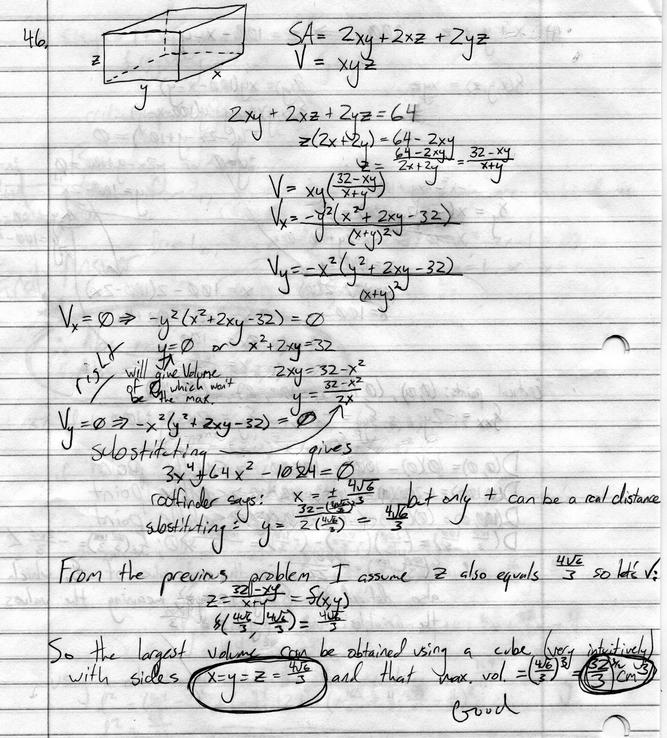 46.
z
y
x
SA = 2xy + 2xz + 2yz
V = xyz
2xy + 2xz + 2yz = 64
z(2x+2y) = 64 - 2xy
z = (64-2xy)/(2x+2y) = (32-xy)/(x+y)
V = xy((32-xy)/(x+y))
Vx = -y²(x² + 2xy - 32)/(x+y)²
Vy = -x²(y² + 2xy - 32)/(x+y)²
Vx = 0 ⇒ -y²(x²+2xy-32) = 0
y=0 or x²+2xy=32
right
will give Volume
of 0, which won't
be the max.
2xy = 32 - x²
y = (32-x²)/2x
Vy = 0 ⇒ -x²(y²+2xy-32) = 0
substituting gives
3x⁴+64x² - 1024 = 0
rootfinder says: x = ± 4√6/3 but only + can be a real distance
substituting: y = (32-(4√6/3)²)/(2(4√6/3)) = 4√6/3
From the previous problem I assume z also equals 4√6/3 so let's √:
z = (32-xy)/(x+y) = f(x,y)
f(4√6/3, 4√6/3) = 4√6/3
So the largest volume can be obtained using a cube (very intuitively)
with sides x=y=z = 4√6/3 and that max. vol = (4√6/3)³ = (32/3)^(3/2) cm³
Good